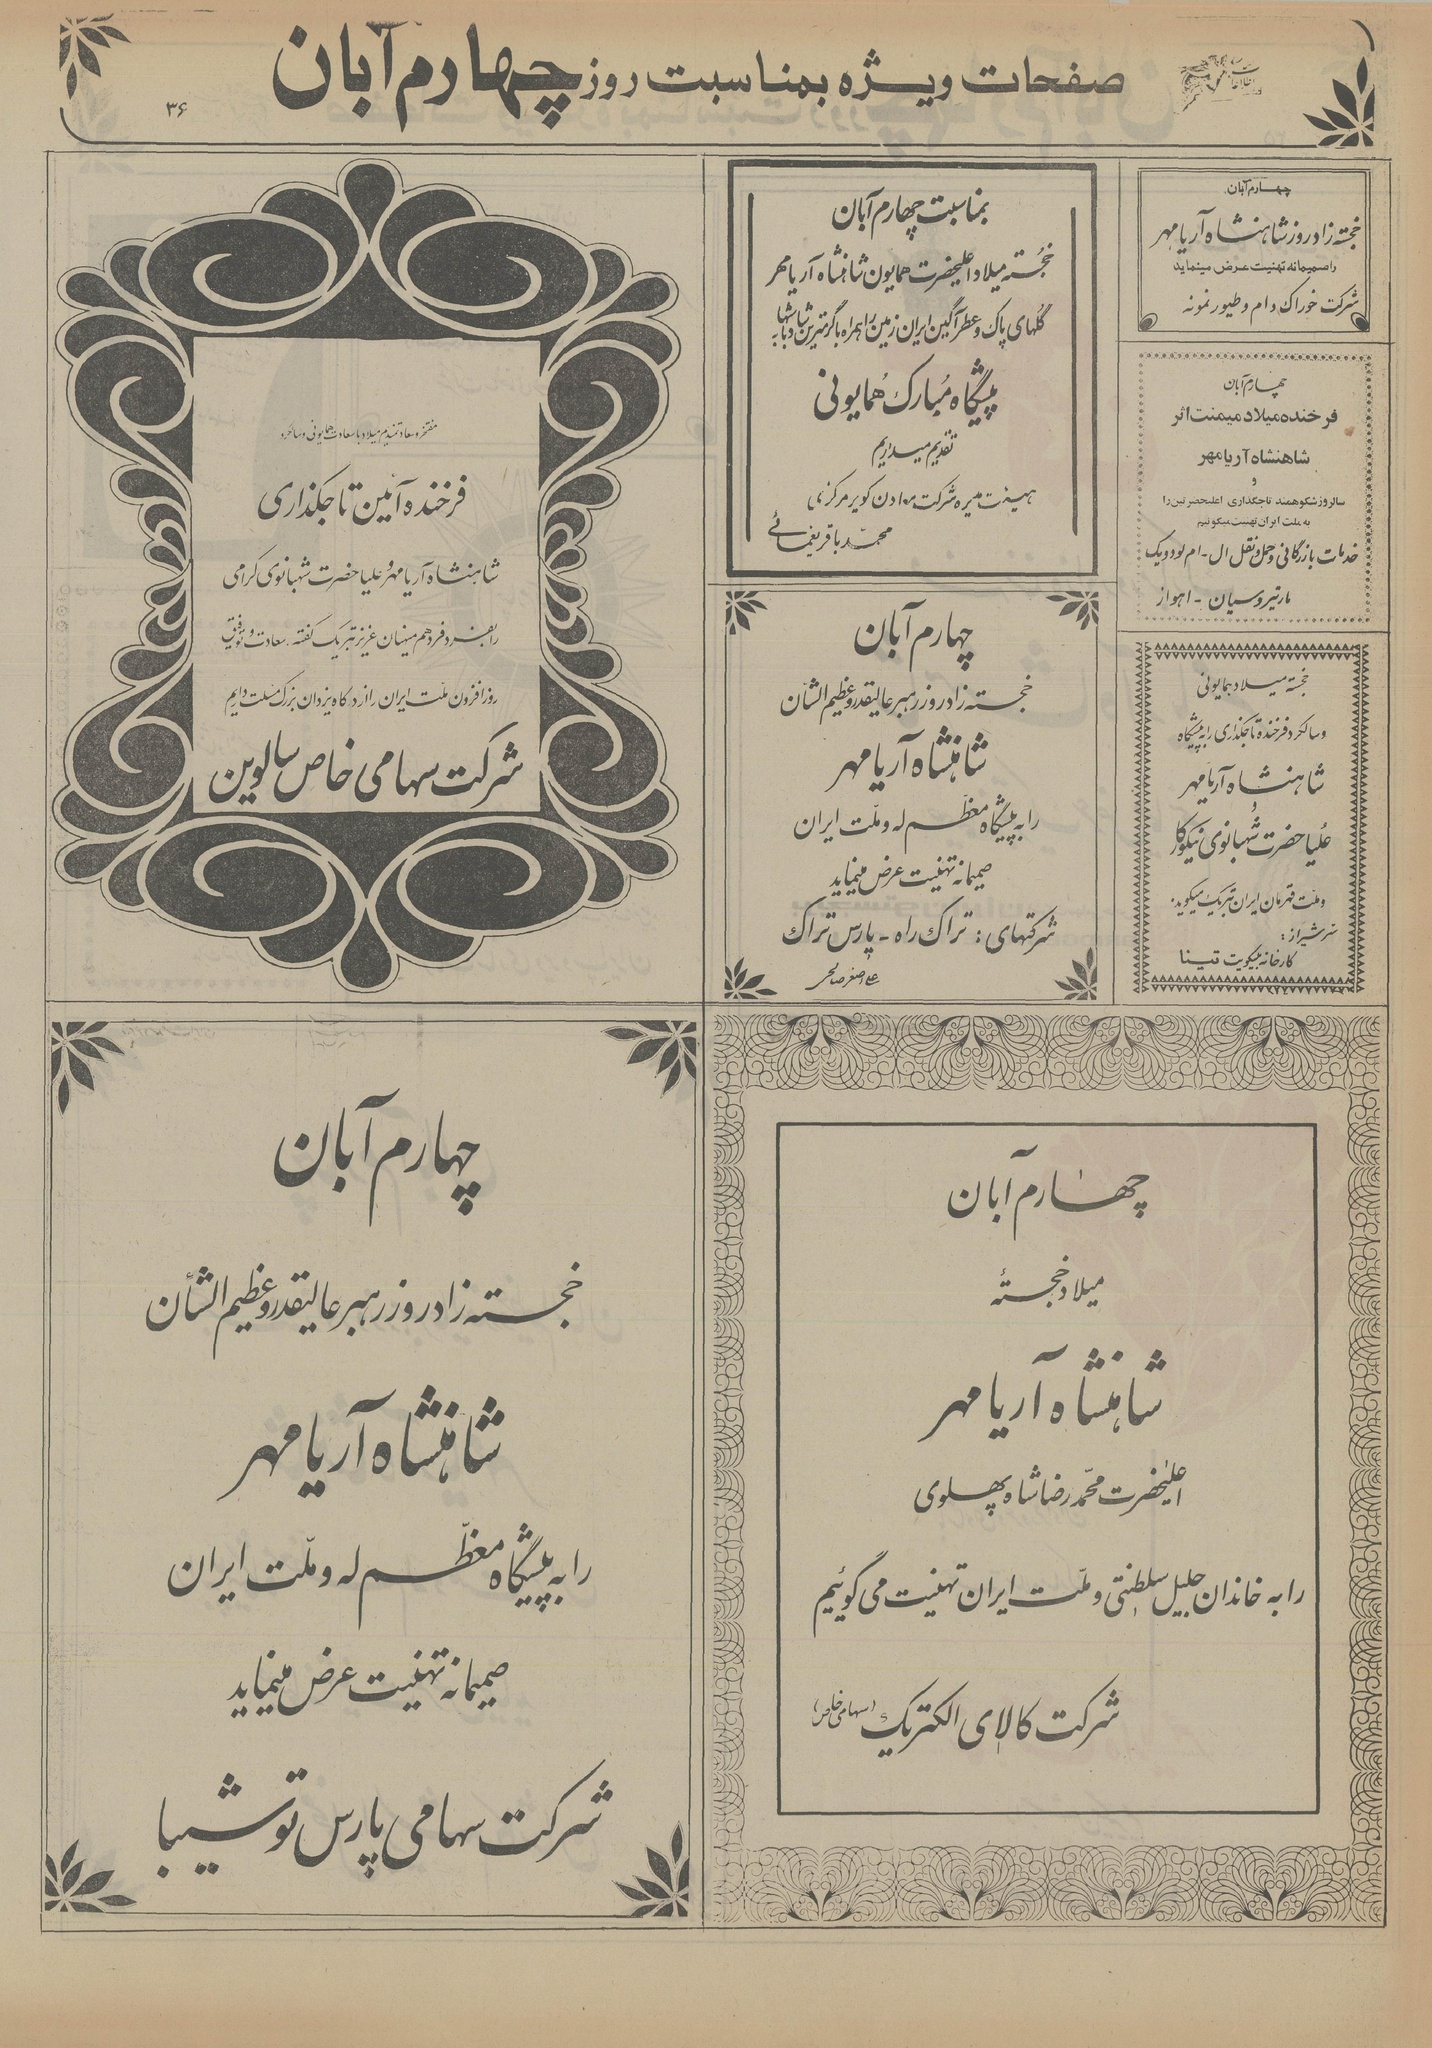 صفحات ویژه بمناسبت روز چهارم آبان
۳۶
چهارم آبان
خجسته زادروز شاهنشاه آریامهر
را صمیمانه تهنیت عرض مینماید
شرکت خوراک دام و طیور نمونه
چهارم آبان
فرخنده میلاد میمنت اثر
شاهنشاه آریامهر
و
سالروز شکوهمند تاجگذاری اعلیحضرتین را
به ملت ایران تهنیت میگوئیم
خدمات بازرگانی و حمل و نقل ال - ام لودویک
مارتیروسیان - اهواز
خجسته میلاد همایونی
و سالگرد فرخنده تاجگذاری را به پیشگاه
شاهنشاه آریامهر
و
علیا حضرت شهبانوی نیکوکار
و ملت قهرمان ایران تبریک میگوید.
شیراز :
کارخانه بیسکویت تینا
بمناسبت چهارم آبان
خجسته میلاد اعلیحضرت همایون شاهنشاه آریامهر
گلهای پاک و عطرآگین ایران زمین را همراه با گرمترین شادباشها به
پیشگاه مبارک همایونی
تقدیم میداریم
هیئت مدیره شرکت معادن کویر مرکزی
محمد باقر یغمائی
چهارم آبان
خجسته زادروز رهبر عالیقدر و عظیم الشأن
شاهنشاه آریامهر
را به پیشگاه معظم له و ملت ایران
صمیمانه تهنیت عرض مینماید
شرکتهای : تراک راه - پارس تراک
علی اصغر صالحی
مفتخر و سعادتمندیم میلاد با سعادت همایونی و سالگرد
فرخنده آئین تاجگذاری
شاهنشاه آریامهر و علیا حضرت شهبانوی گرامی
را بفرد فرد هم میهنان عزیز تبریک گفته. سعادت و توفیق
روز افزون ملت ایران را از درگاه یزدان بزرگ مسئلت داریم
شرکت سهامی خاص سالوین
چهارم آبان
میلاد خجستهٔ
شاهنشاه آریامهر
اعلیحضرت محمدرضا شاه پهلوی
را به خاندان جلیل سلطنتی و ملت ایران تهنیت می گوئیم
شرکت کالای الکتریک (سهامی خاص)
چهارم آبان
خجسته زادروز رهبر عالیقدر و عظیم الشأن
شاهنشاه آریامهر
را به پیشگاه معظم له و ملت ایران
صمیمانه تهنیت عرض مینماید
شرکت سهامی پارس توشیبا